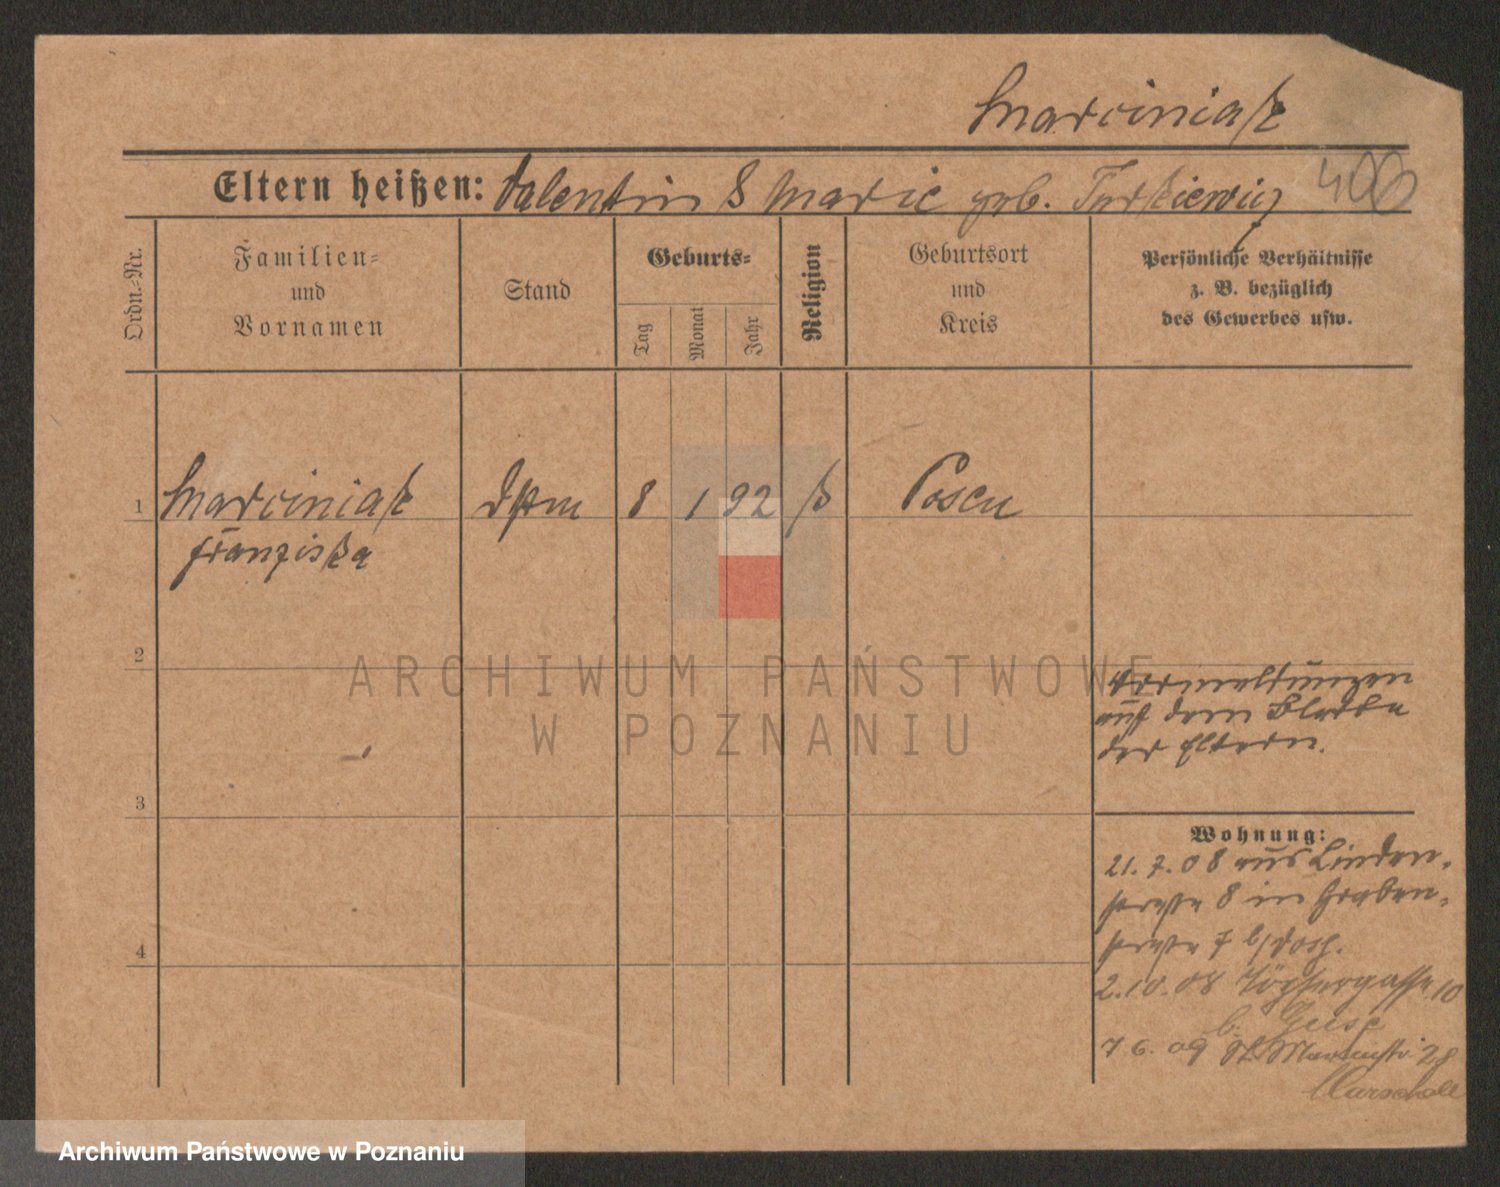 Marciniak
Eltern heißen: Valentin & Marie geb. Turkiewicz 400
Ordn.-Nr.
Familien-
und
Vornamen
Stand
Geburts-
Tag
Monat
Jahr
Religion
Geburtsort
und
Kreis
Persönliche Verhältnisse
z. B. bezüglich
des Gewerbes usw.
1 Marciniak Dstm 8 1 92 k Posen
Franziska
2
Vermeldungen
auf dem Blatte
der Eltern.
3
Wohnung:
21.7.08 aus Linden-
straße 8 in Graben-
straße 7 b/
4
2.10.08 Töpfergasse 10
b.
7 6. 09 St. Martinstr. 28
Marschall
ARCHIWUM PAŃSTWOWE
W POZNANIU
Archiwum Państwowe w Poznaniu